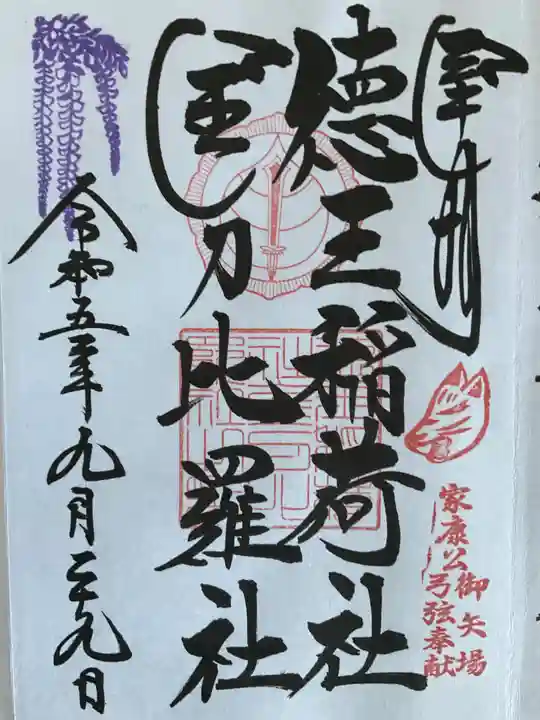 奉拝
家康公御矢場
弓弦奉献
徳王稲荷社
金刀比羅社
令和五年九月二十九日